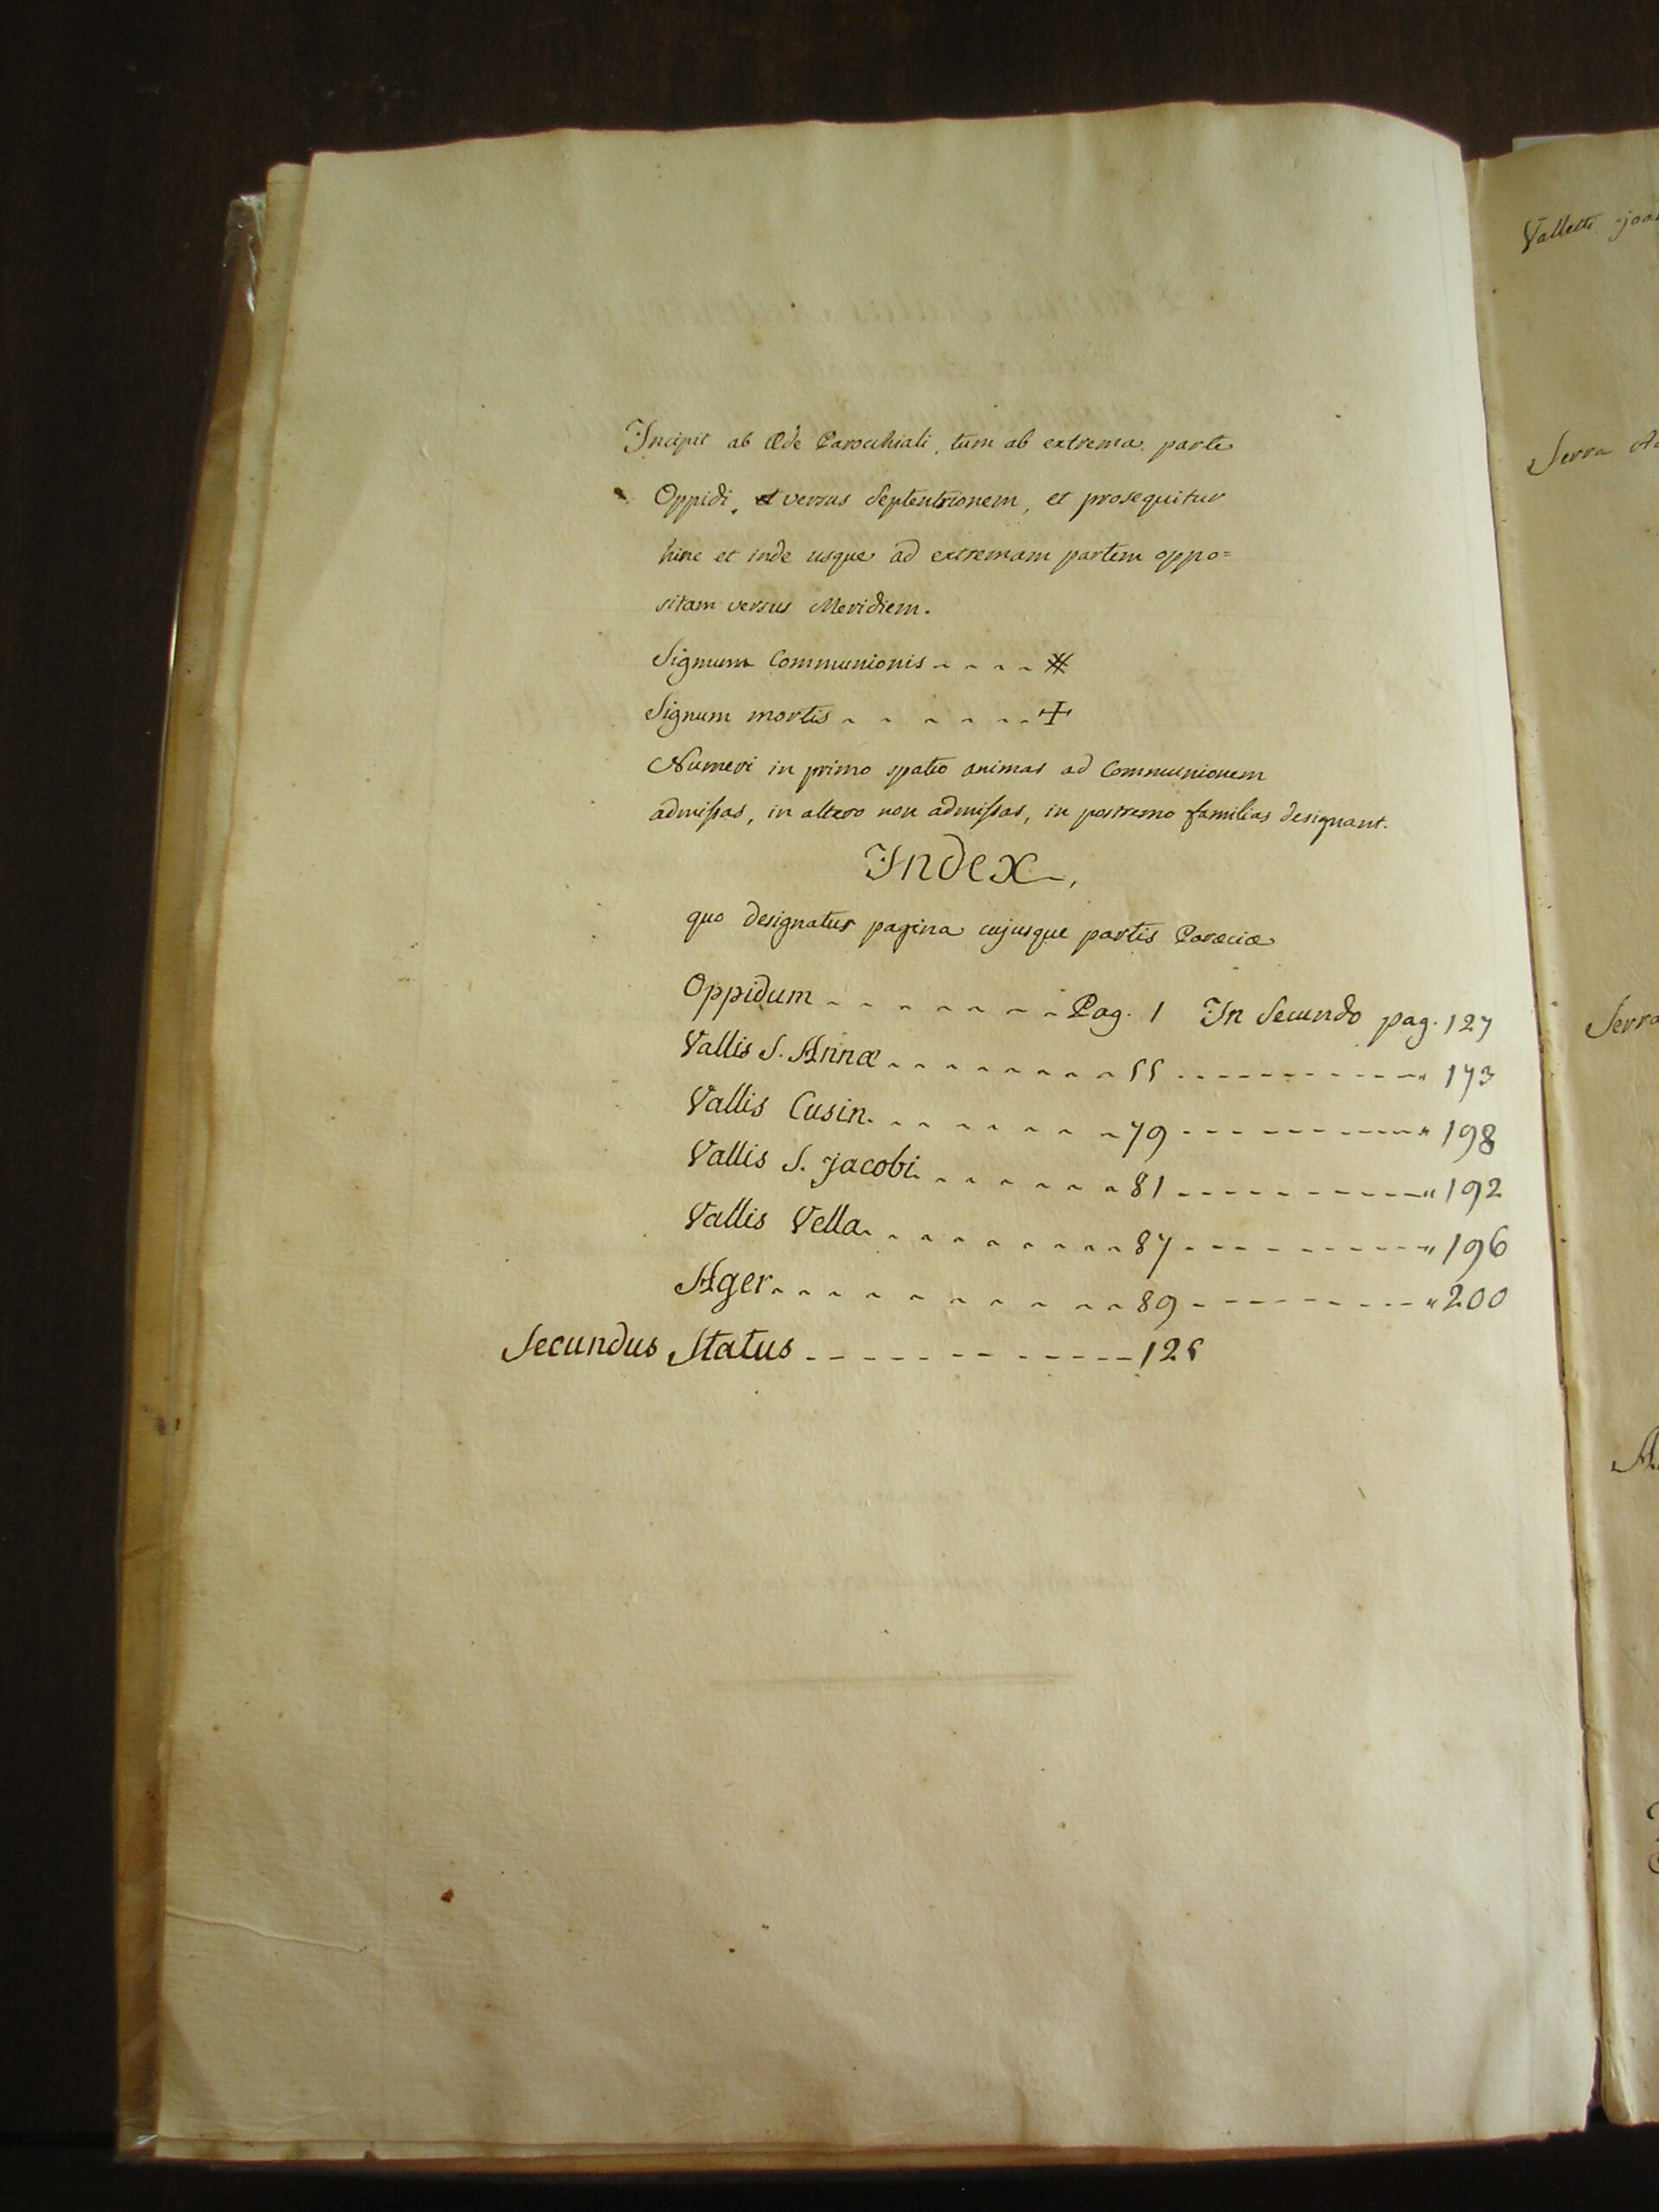 Incipit ab Æde Parochiali, tum ab extrema parte
Oppidi, et versus Septentrionem, et prosequitur
hinc et inde usque ad extremam partem oppo=
sitam versus Meridiem.
Signum Communionis - - - - #
Signum mortis - - - - - - +
Numeri in primo spatio animas ad Communionem
admissas, in altero non admissas, in postremo familias designant.
Index,
quo designatur pagina cujusque partis Parœciæ
Oppidum - - - - - - - Pag. 1 In Secundo pag. 127
Vallis S. Annæ - - - - - - - - 55 - - - - - - - - - " 173
Vallis Cusin. - - - - - - - 79 - - - - - - - - - " 198
Vallis S. Jacobi - - - - - - 81 - - - - - - - - - " 192
Vallis Vella - - - - - - - - 87 - - - - - - - - - " 196
Ager - - - - - - - - - - 89 - - - - - - - - - " 200
Secundus Status - - - - - - - - - - - 125
Valletti
Serra
Serra